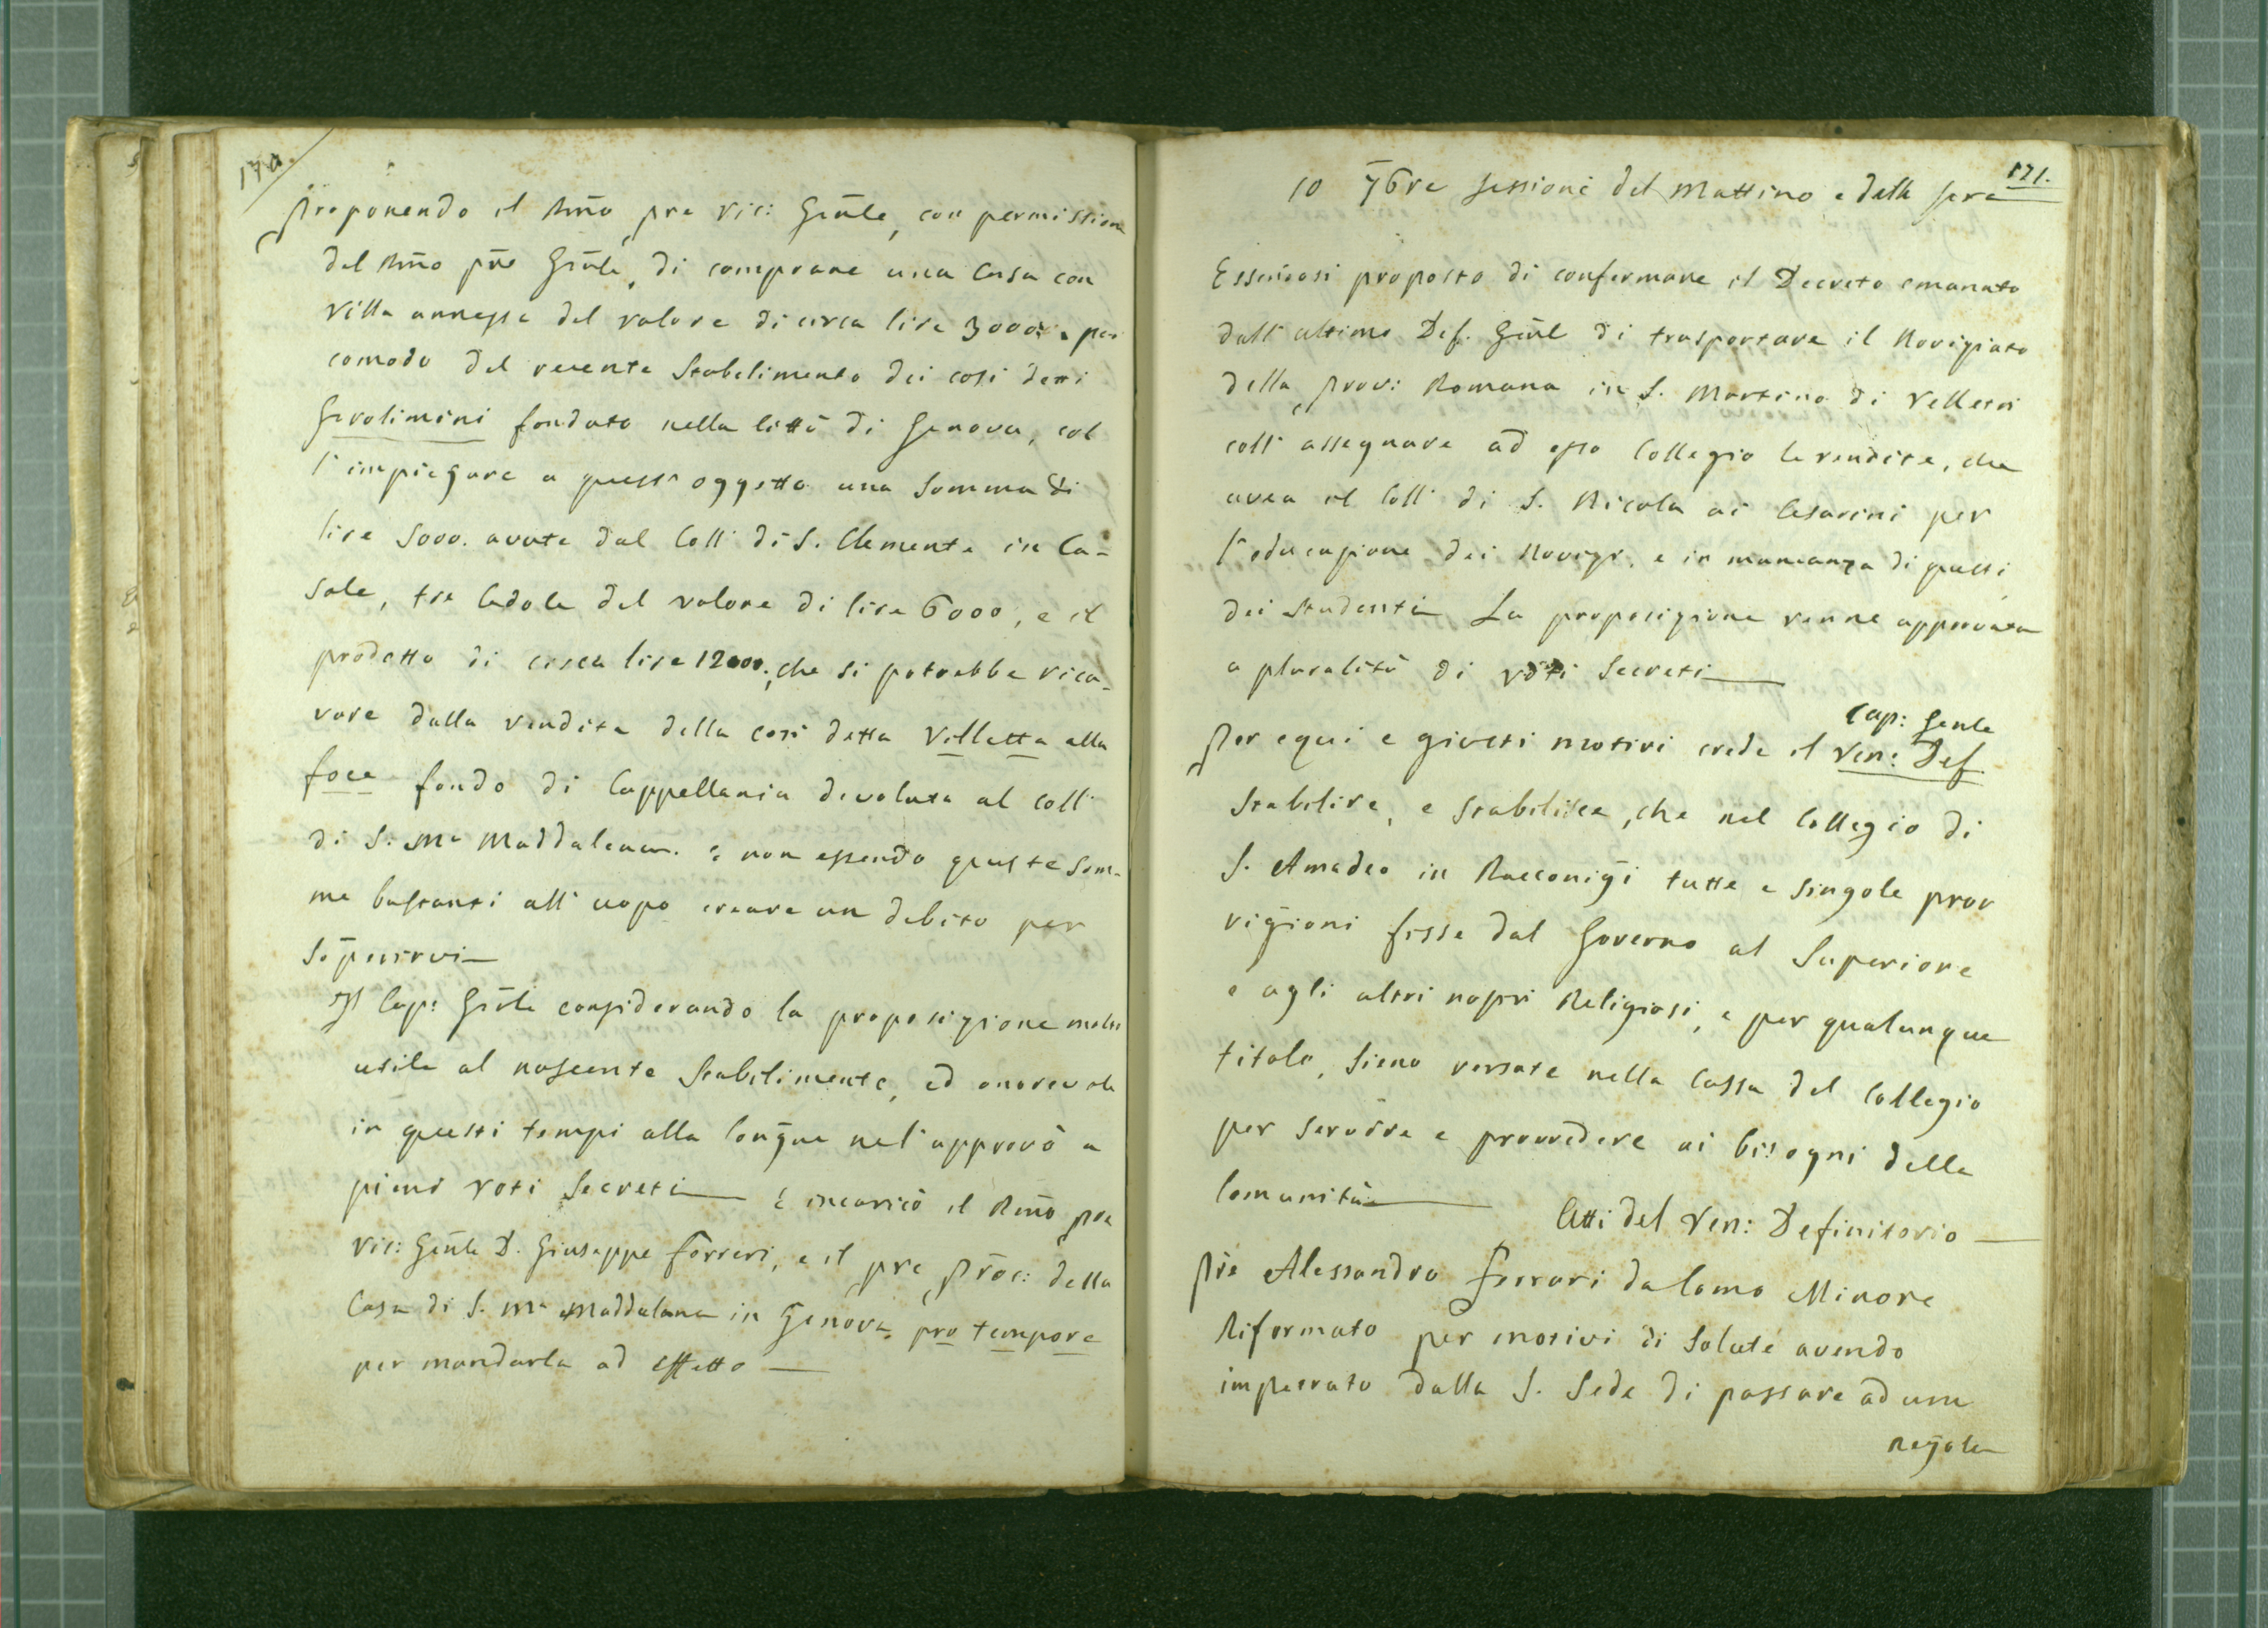 170.
Proponendo il Rm̃o pre Vic: Gen̄le, con permissione
del Rm̃o pr̃e Gen̄le, di comprare una Casa con
Villa annessa del valore di circa lire 30000. per
comodo del recente Stabilimento dei così detti
Gerolimini fondato nella Città di Genova, col
l'impiegare a quest'oggetto una Somma di
lire 5000. avute dal Coll: di S. Clemente in Ca-
sale, tre Cedole del valore di lire 6000, e il
prodotto di circa lire 12000., che si potrebbe rica-
vare dalla vendita della così detta Villetta alla
foce fondo di Cappellania devoluta al Coll:
di S. Mª Maddalena. e non essendo queste Som-
me bastanti all'uopo creare un debito per
Il Cap: Gen̄le considerando la proposizione molto
utile al nascente Stabilimento, ed onorevole
in questi tempi alla Conḡne nr̃a l'approvò a
pieni voti Secreti — E incaricò il Rm̃o pre
Vic: Gen̄le D. Giuseppe Ferreri, e il pre Proc: della
Casa di S. Mª Maddalena in Genova pro tempore
per mandarla ad effetto —
171.
10 7bre Sessione del Mattino e della Sera
Essendosi proposto di confermare il Decreto emanato
dall'ultimo Def. Gen̄l di trasportare il Noviziato
della Prov: Romana in S. Martino di Velletri
coll'assegnare ad esso Collegio le rendite, che
avea il Coll: di S. Nicola ai Cesarini per
l'educazione dei Novizi, e in mancanza di questi
dei Studenti La proposizione venne approvata
a pluralità di voti Secreti —
Cap: Genle
Per equi e giusti motivi crede il Ven: Def.
Stabilire, e Stabilisce, che nel Collegio di
S. Amadeo in Racconigi tutte e singole prov
vigioni fisse dal Governo al Superiore
e agli altri nostri Religiosi, e per qualunque
titolo, Sieno versate nella Cassa del Collegio
per servire e provvedere ai bisogni della
Comunità —
Atti del Ven: Definitorio —
Pr̃e Alessandro Ferrari da Como Minore
Riformato per motivi di Salute avendo
impetrato dalla S. Sede di passare ad una
Regola